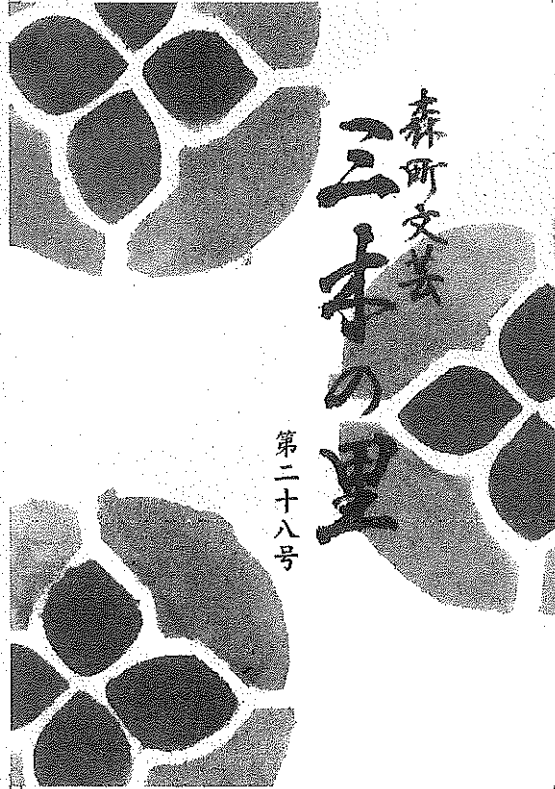 森町文芸
三木の里
第二十八号